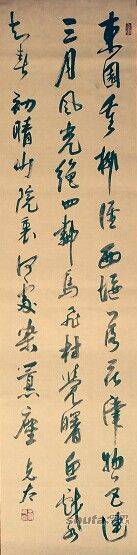 東園垂柳徑西堰落花津物色連
三月風光絕四鄰鳥飛村覺曙魚戲水
知春初晴山院裏何處染囂塵